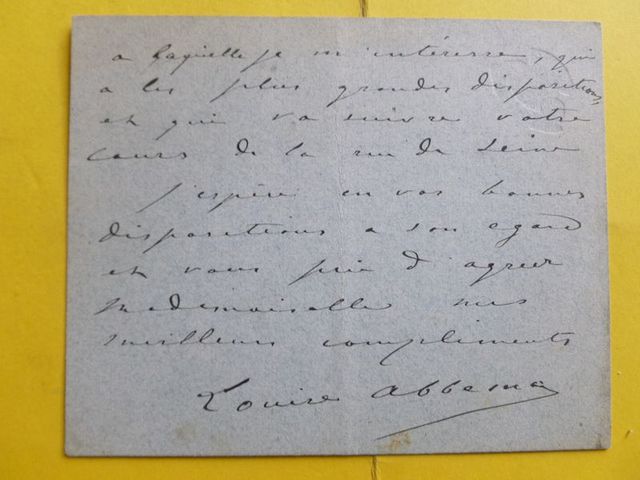 a laquelle je m'intéresse, qui
a les plus grandes dispositions,
et qui va suivre votre
cours de la rue de Seine
J'espère en vos bonnes
dispositions a son egard
et vous prie d'agreer
Mademoiselle mes
meilleurs compliments
Louise Abbema